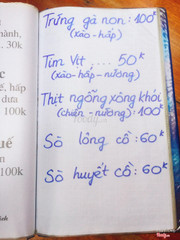 hành,
. 30k
c
ê, hấp
dưa
100k
uế
n
100k
Trứng gà non : 100k
(xào - hấp)
Tim Vịt .... 50k
(xào - hấp - nướng)
Thịt ngỗng xông khói
(chiên - nướng) : 100k
Sò lông cồ : 60k
Sò huyết cồ : 60k